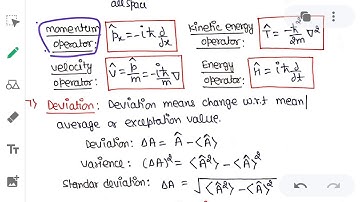 all spac
momentum operator: p̂x = -iħ ∂/∂x
kinetic energy operator: T̂ = -ħ²/2m ∇²
velocity operator: v̂ = p̂/m = -iħ/m ∇
Energy operator: Ĥ = iħ ∂/∂t
7) Deviation: Deviation means change w.r.t mean/
average or exceptation value.
Deviation: ΔA = Â - <Â>
Varience: (ΔA)² = <Â²> - <Â>²
Standar deviation: ΔA = √<Â²> - <Â>²